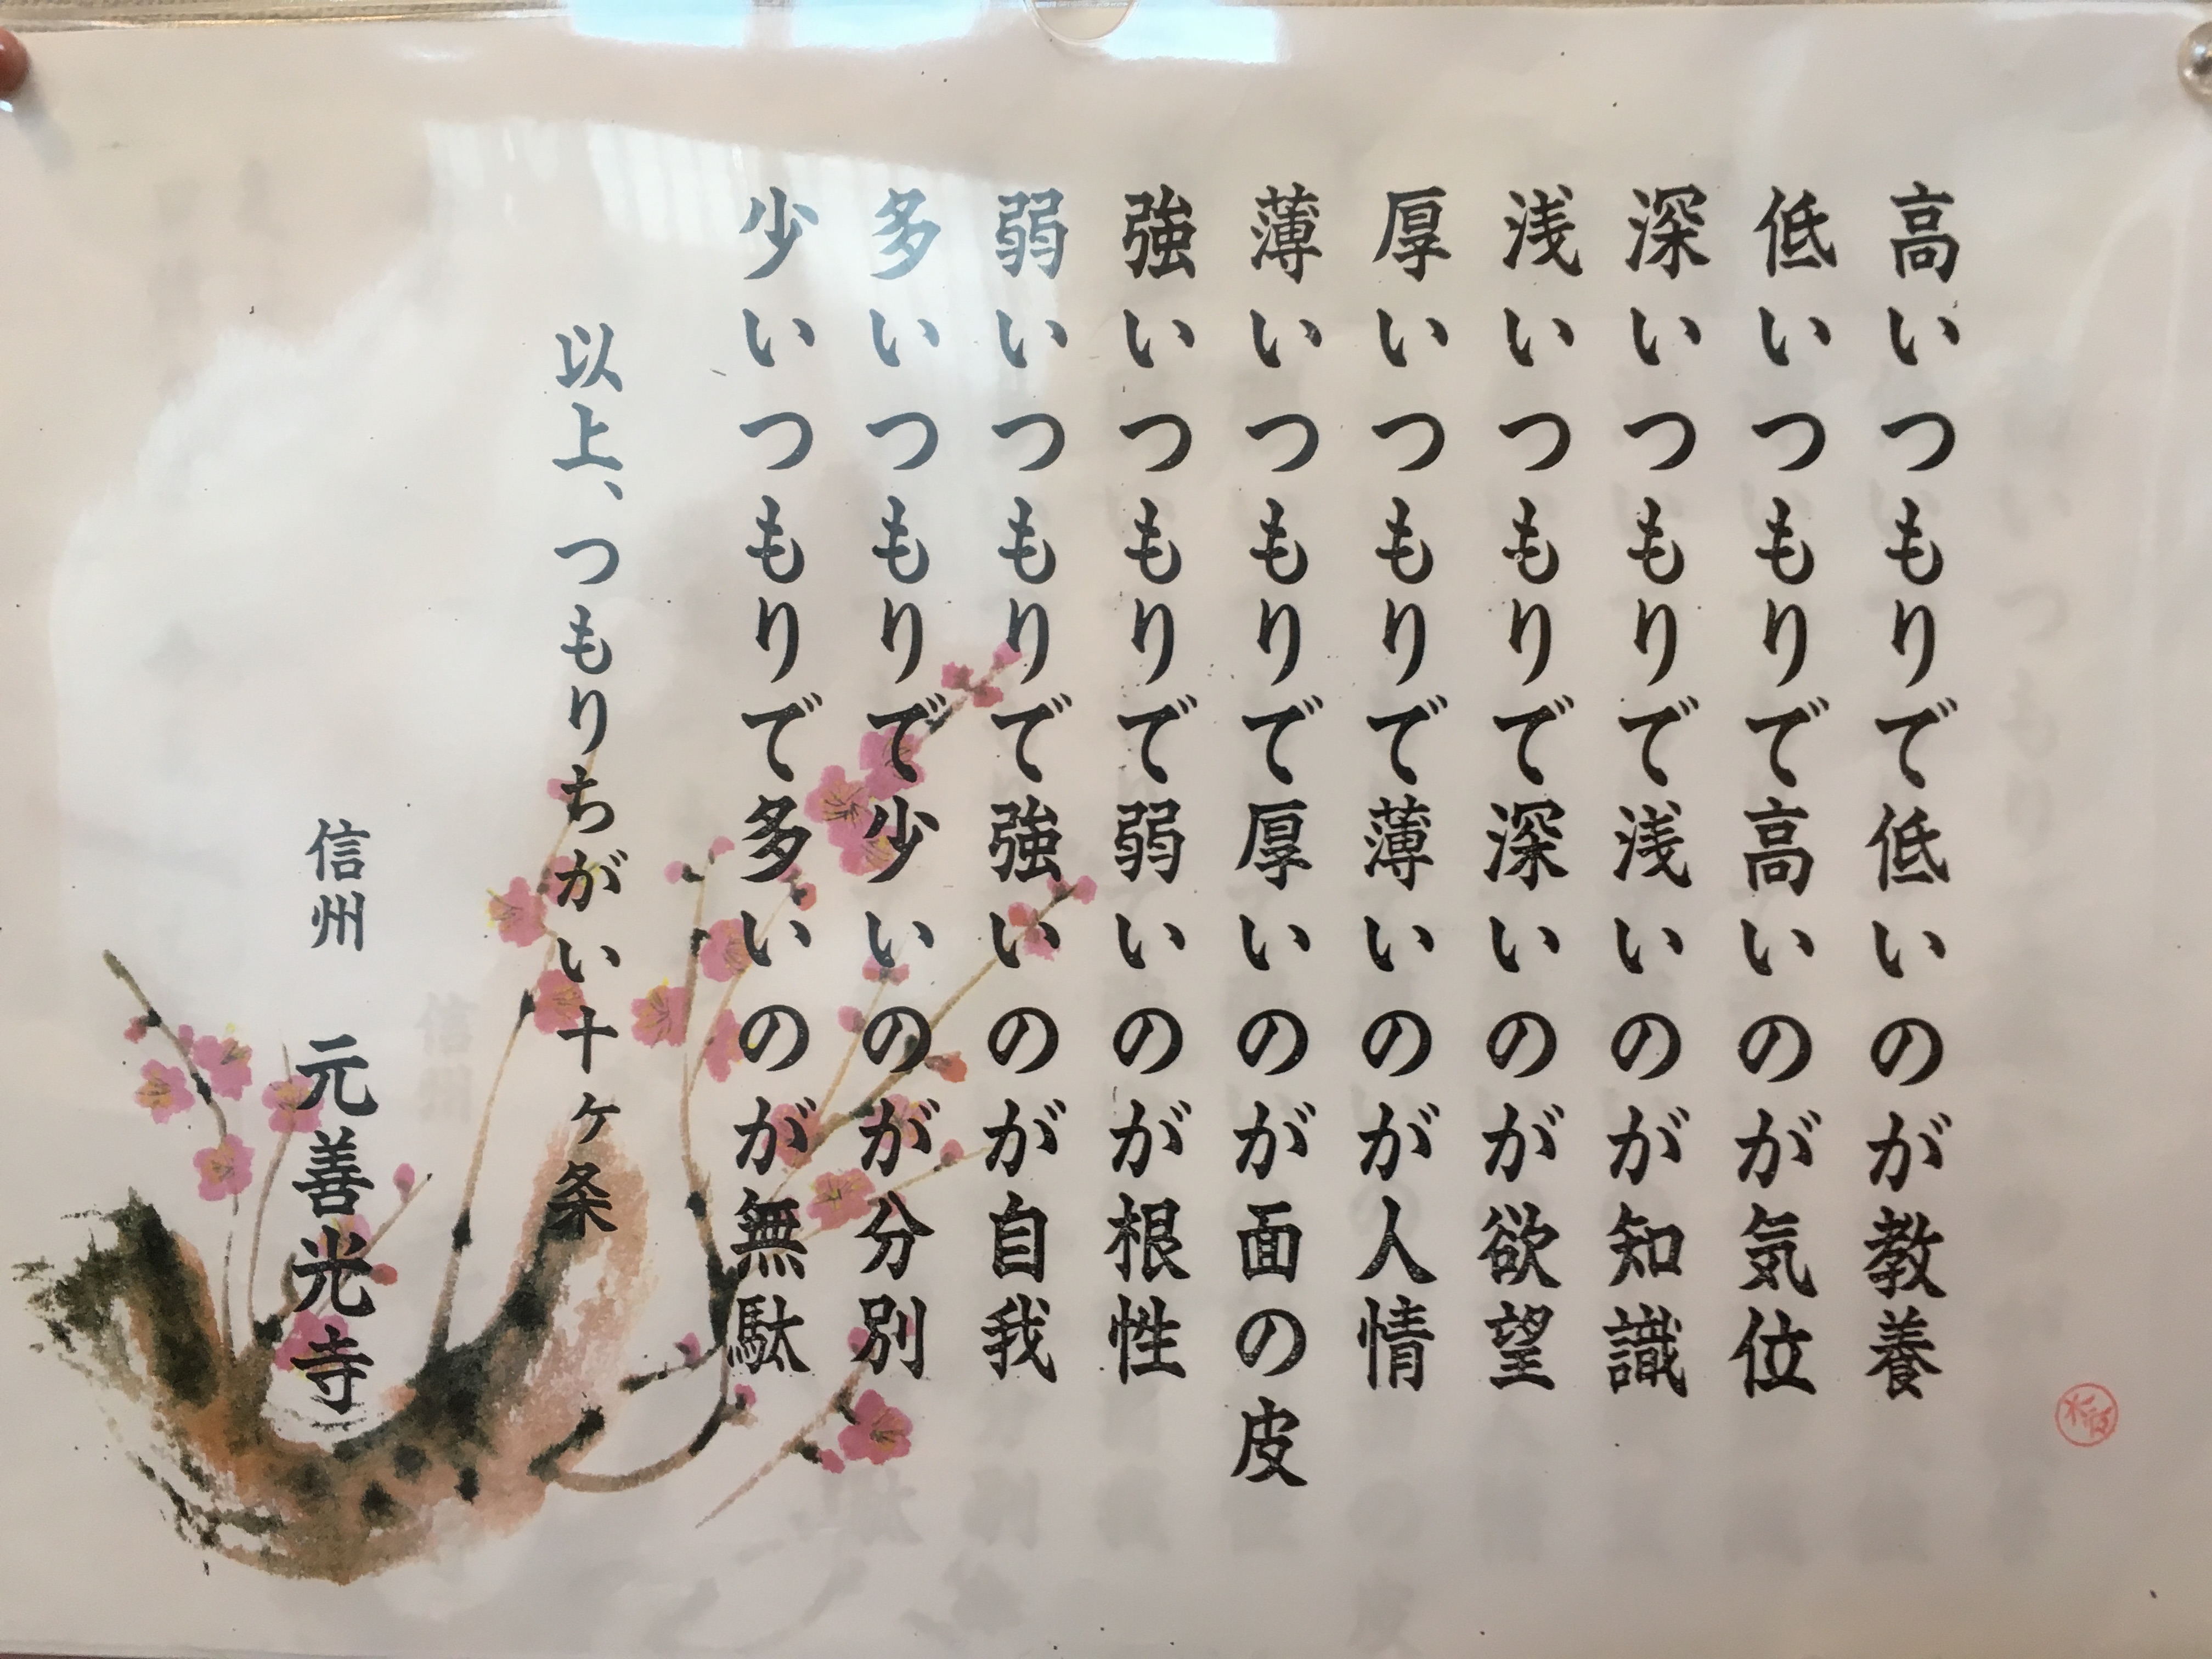 高いつもりで低いのが教養
低いつもりで高いのが気位
深いつもりで浅いのが知識
浅いつもりで深いのが欲望
厚いつもりで薄いのが人情
薄いつもりで厚いのが面の皮
強いつもりで弱いのが根性
弱いつもりで強いのが自我
多いつもりで少いのが分別
少いつもりで多いのが無駄
以上、つもりちがい十ヶ条
信州 元善光寺